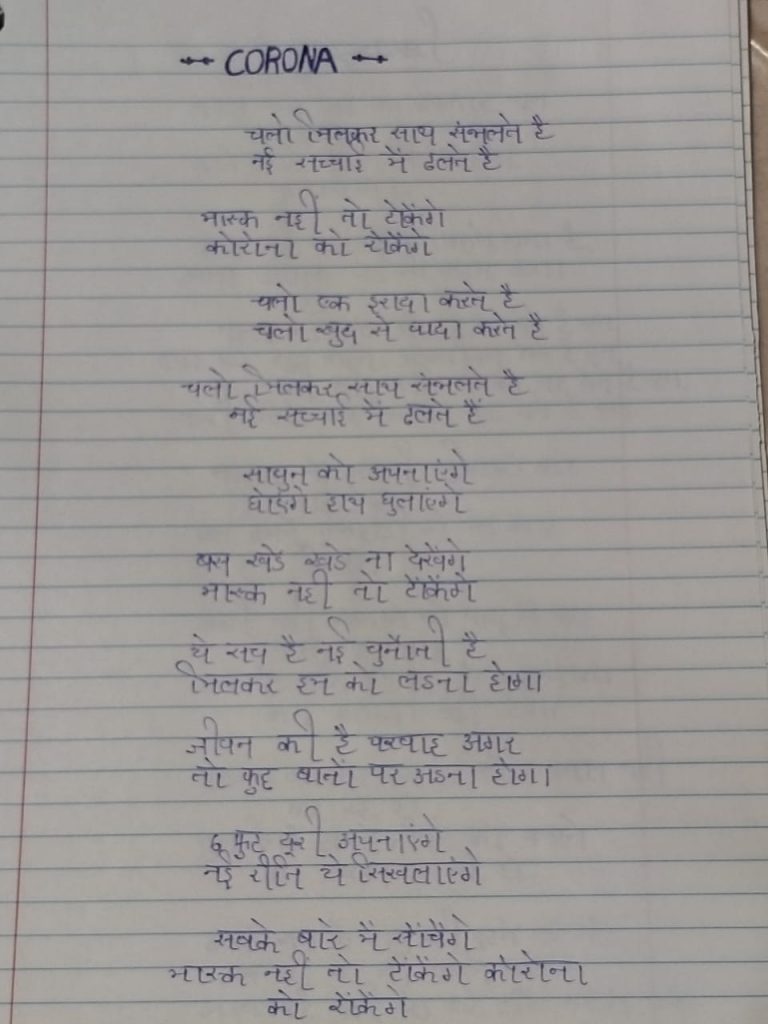 CORONA
चलो मिलकर साथ संभलते है
नई सच्चाई में ढलते है
मास्क नहीं तो टोकेंगे
कोरोना को रोकेंगे
चलो एक इरादा करते है
चलो खुद से वादा करते है
चलो मिलकर साथ संभलते है
नई सच्चाई में ढलते हैं
साबुन को अपनाएंगे
धोएंगे हाथ धुलाएंगे
बस खडे खडे ना देखेंगे
मास्क नहीं तो टोकेंगे
ये सच है नई चुनौती है
मिलकर हम को लडना होगा
जीवन की है परवाह अगर
तो कुछ बातों पर अडना होगा
६ फुट दूरी अपनाएंगे
नई रीति ये सिखलाएंगे
सबके बारे में सोंचेंगे
मास्क नहीं तो टोंकेंगे कोरोना
को रोकेंगे